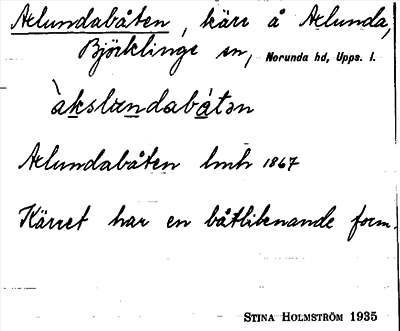 Axlundabåten, kärr å Axlunda,
Björklinge sn, Norunda hd, Upps. l.
Axlundabåten lmh 1867
Kärret har en båtliknande form.
STINA HOLMSTRÖM 1935